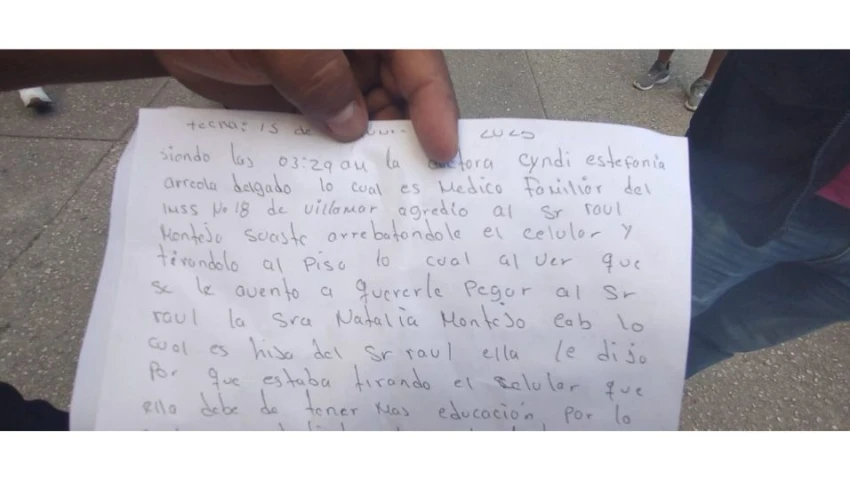 fecha: 15 de
siendo las 03:29 am la doctora cyndi estefania
arreola delgado lo cual es Medico Familiar del
imss No 18 de villamar agredio al Sr raul
Montejo Suaste arrebatandole el celular y
tirandolo al Piso lo cual al ver que
se le avento a quererle Pegar al Sr
raul la Sra Natalia Montejo cab lo
cual es hija del Sr raul ella le dijo
Por que estaba tirando el celular que
ella debe de tener mas educación por lo